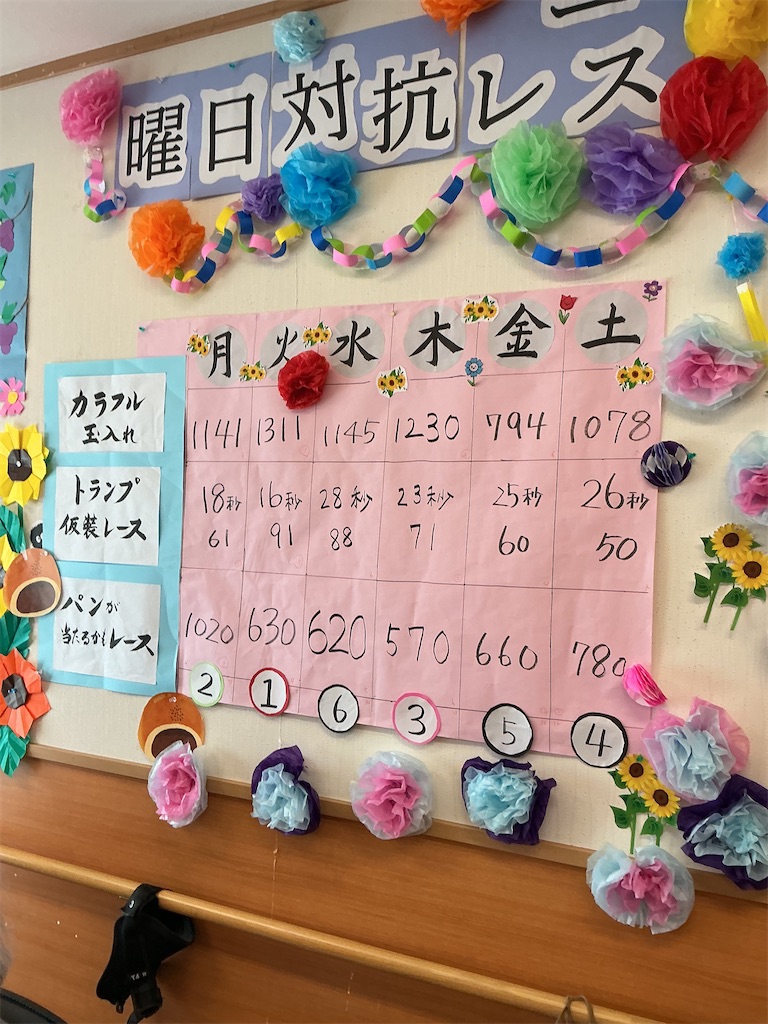 曜日対抗レース
月 火 水 木 金 土
カラフル
玉入れ
1141 1311 1145 1230 794 1078
トランプ
仮装レース
18秒 16秒 28秒 23秒 25秒 26秒
61 91 88 71 60 50
パンが
当たるかもレース
1020 630 620 570 660 780
2 1 6 3 5 4